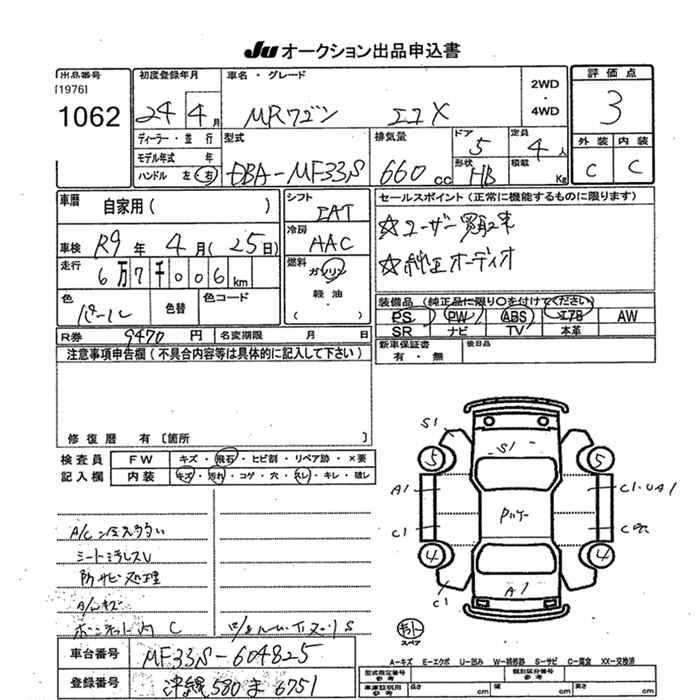 Ju オークション出品申込書
出品番号 初度登録年月 車名・グレード 2WD・4WD 評価点
[1976]
1062 24 4月 MRワゴン エコX 3
ディーラー・並行 型式 排気量 ドア 5 定員 4人 外装 内装
モデル年式 年
ハンドル 左・右 DBA-MF33S 660cc 形状 HB 積載 Kg C C
車暦 自家用( ) シフト IAT セールスポイント(正常に機能するものに限ります)
車検 R9年 4月(25日) 冷房 AAC ☆ユーザー買取車
走行 6万7千006km 燃料 ガソリン・軽油・( ) ☆純正オーディオ
色 パール 色替 色コード
装備品(純正品に限り○を付けてください)
PS PW ABS エアB AW
SR ナビ TV 本革
R券 9470円 名変期限 月 日
新車保証書 有・無 後日品
注意事項申告欄(不具合内容等は具体的に記入して下さい)
修復暦 有〔箇所 〕
検査員記入欄 FW キズ・飛石・ヒビ割・リペア跡・×要
内装 キズ・汚れ・コゲ・穴・スレ・キレ・破レ
S1 S1
5 5
A1 C1・UA1
C1
4 4
C1 A1
シート汚レスレ
防サビ処理
ボンネット内 C
スペア
車台番号 MF33S-604825
登録番号 580 ま 6751
A-キズ E-エクボ U-凹み W-補修跡 S-サビ C-腐食 XX-交換済
型式指定番号 参考 類別区分番号 参考
車庫証明用 参考 長さ cm 幅 cm 高さ cm